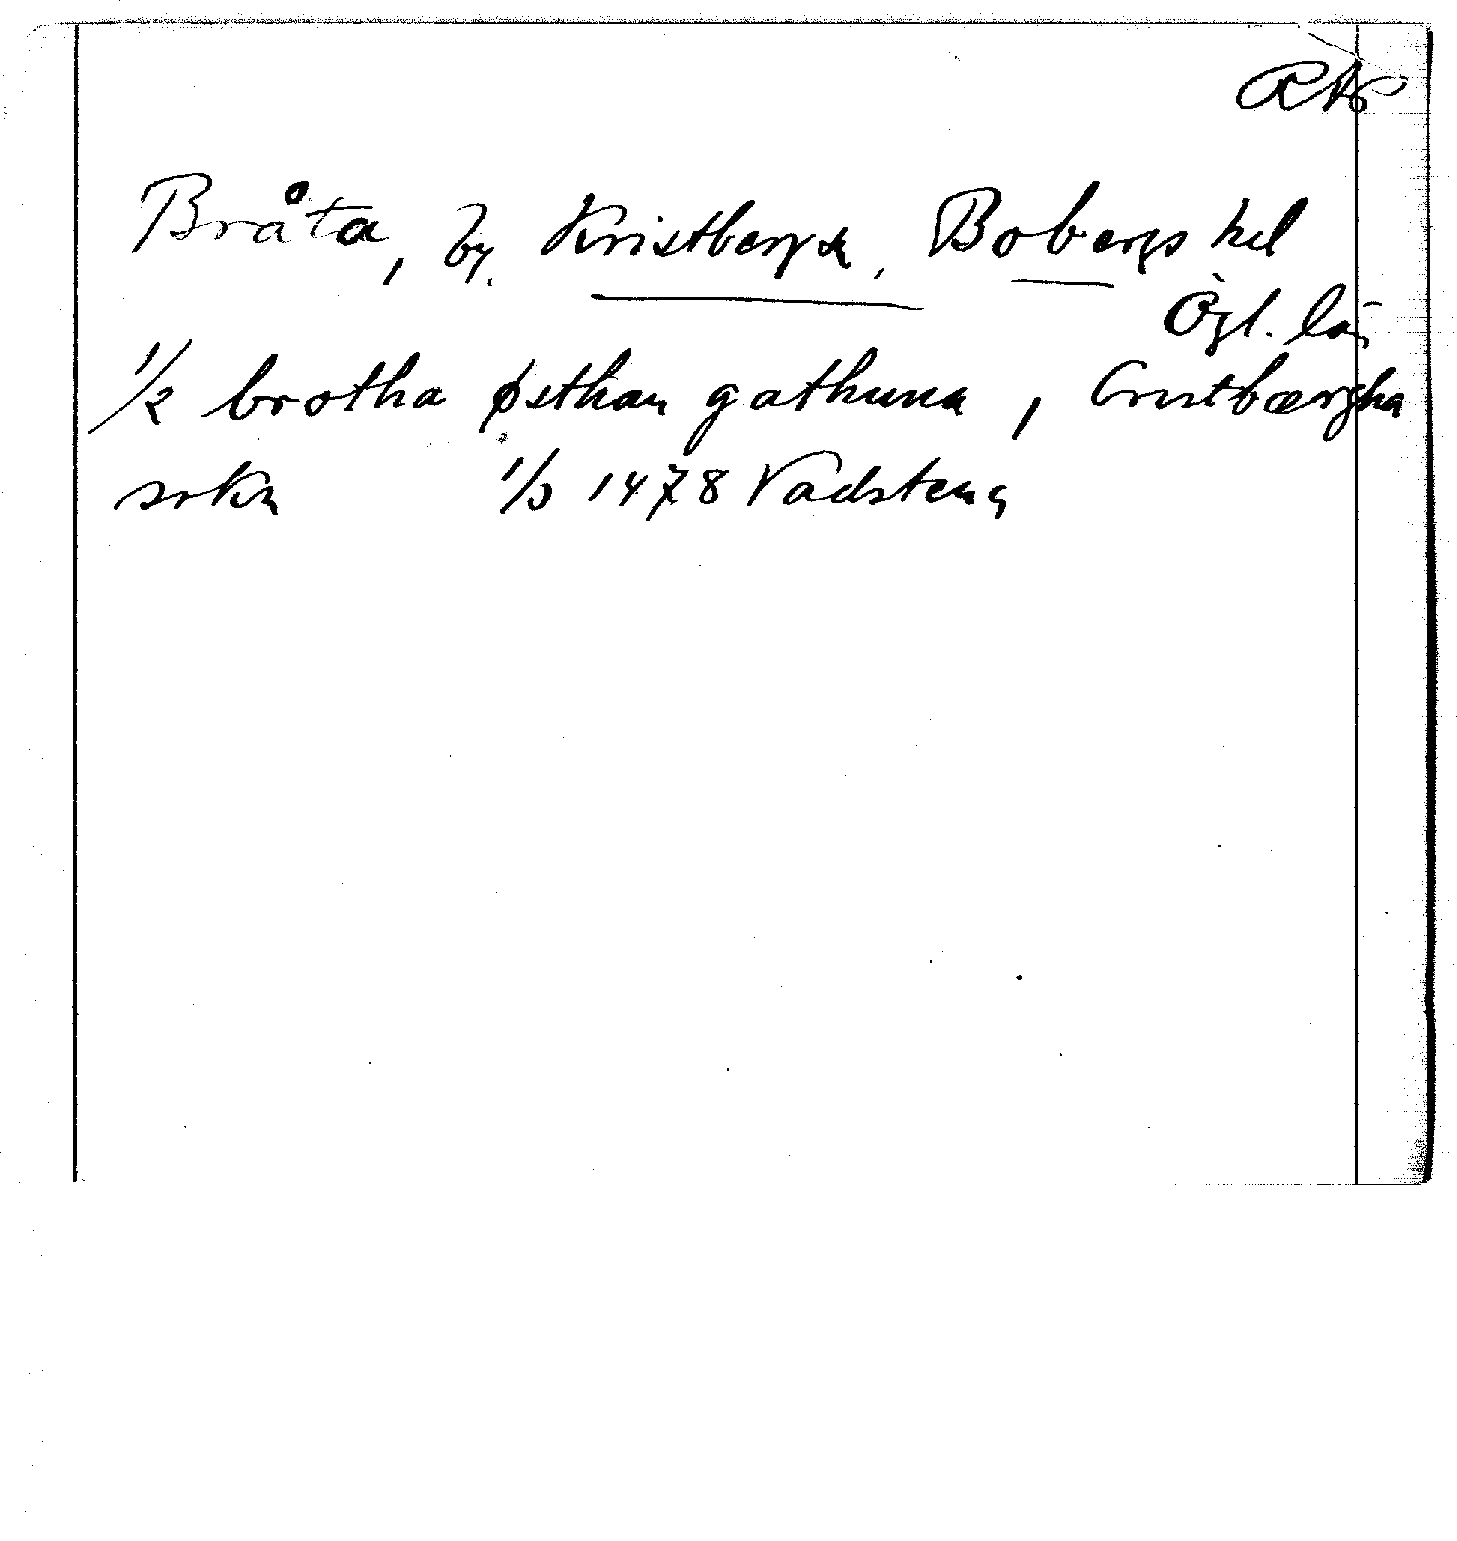 RAp
Bråta, by, Kristbergs sn, Bobergs hd
Ögl. län
1/2 brotha østhan gathuna, Cristbærgha
sokn 1/5 1478 Vadstena